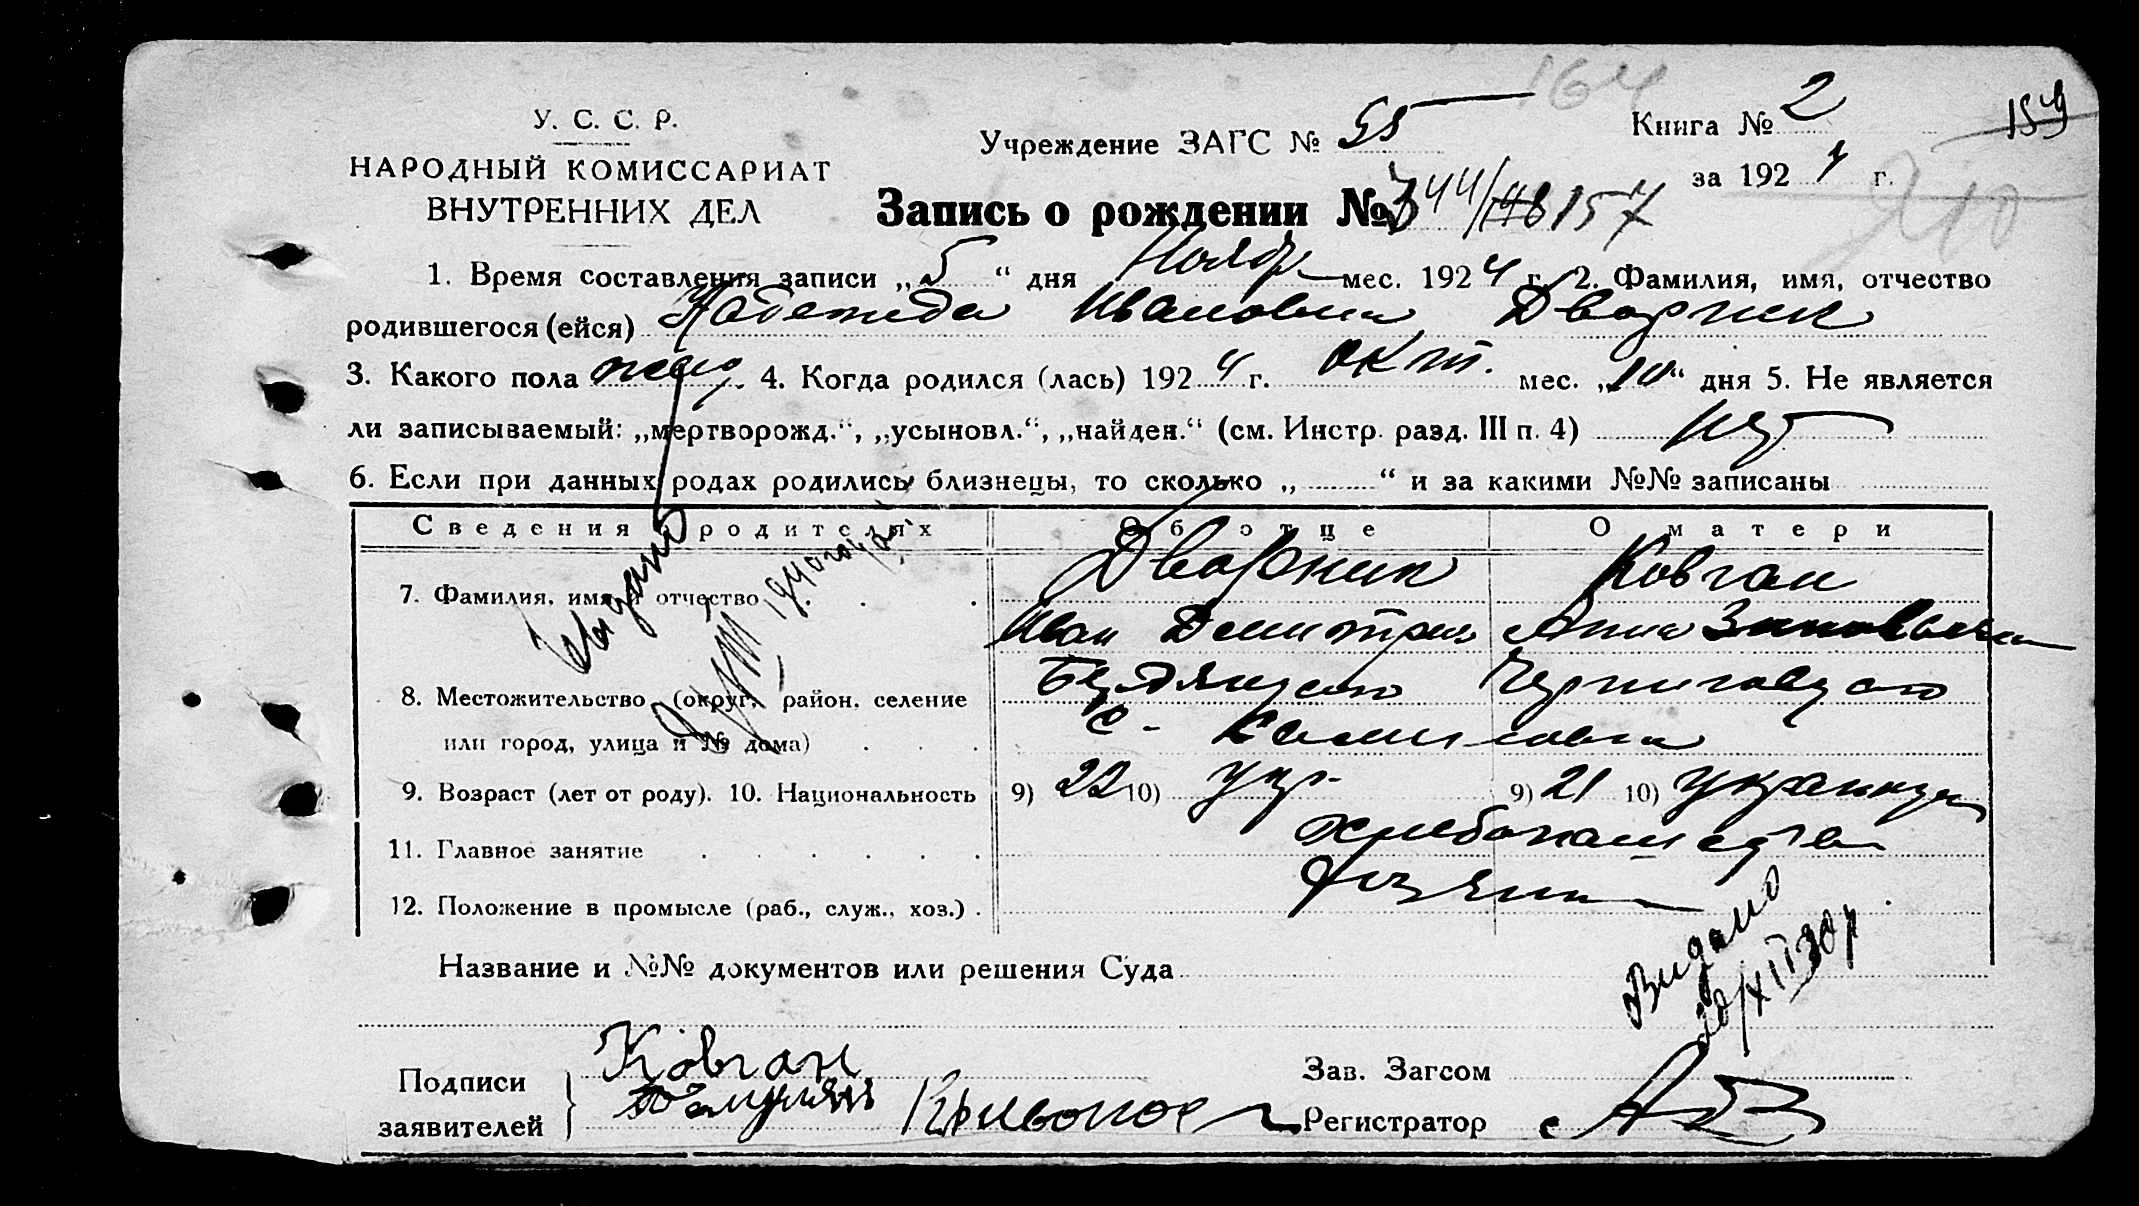 164
У. С. С. Р.
Учреждение ЗАГС № 55
Книга № 2
159
НАРОДНЫЙ КОМИССАРИАТ
ВНУТРЕННИХ ДЕЛ
за 1924 г.
210
Запись о рождении № 344/157
1. Время составления записи „5“ дня Ноябр. мес. 1924 г. 2. Фамилия, имя, отчество
родившегося (ейся) Надежда Ивановна Дворник
3. Какого пола жен. 4. Когда родился (лась) 1924 г. окт. мес. „10“ дня 5. Не является
ли записываемый: „мертворожд.“, „усыновл.“, „найден.“ (см. Инстр. разд. III п. 4) нет
6. Если при данных родах родились близнецы, то сколько „ “ и за какими №№ записаны
Сведения о родителях Об отце О матери
7. Фамилия, имя и отчество Дворник Ковган
Иван Дмитриев Анна Зиновьевна
8. Местожительство (округ, район, селение Бердянского Черниговского
или город, улица и № дома) с.
9. Возраст (лет от роду). 10. Национальность 9) 22 10) укр. 9) 21 10) украинка
11. Главное занятие хлебопашество
12. Положение в промысле (раб., служ., хоз.) хозяин
Видано
Название и №№ документов или решения Суда
Видано
20/XII 30 р
Подписи
заявителей
Ковган
Кривонос
Зав. Загсом
Регистратор